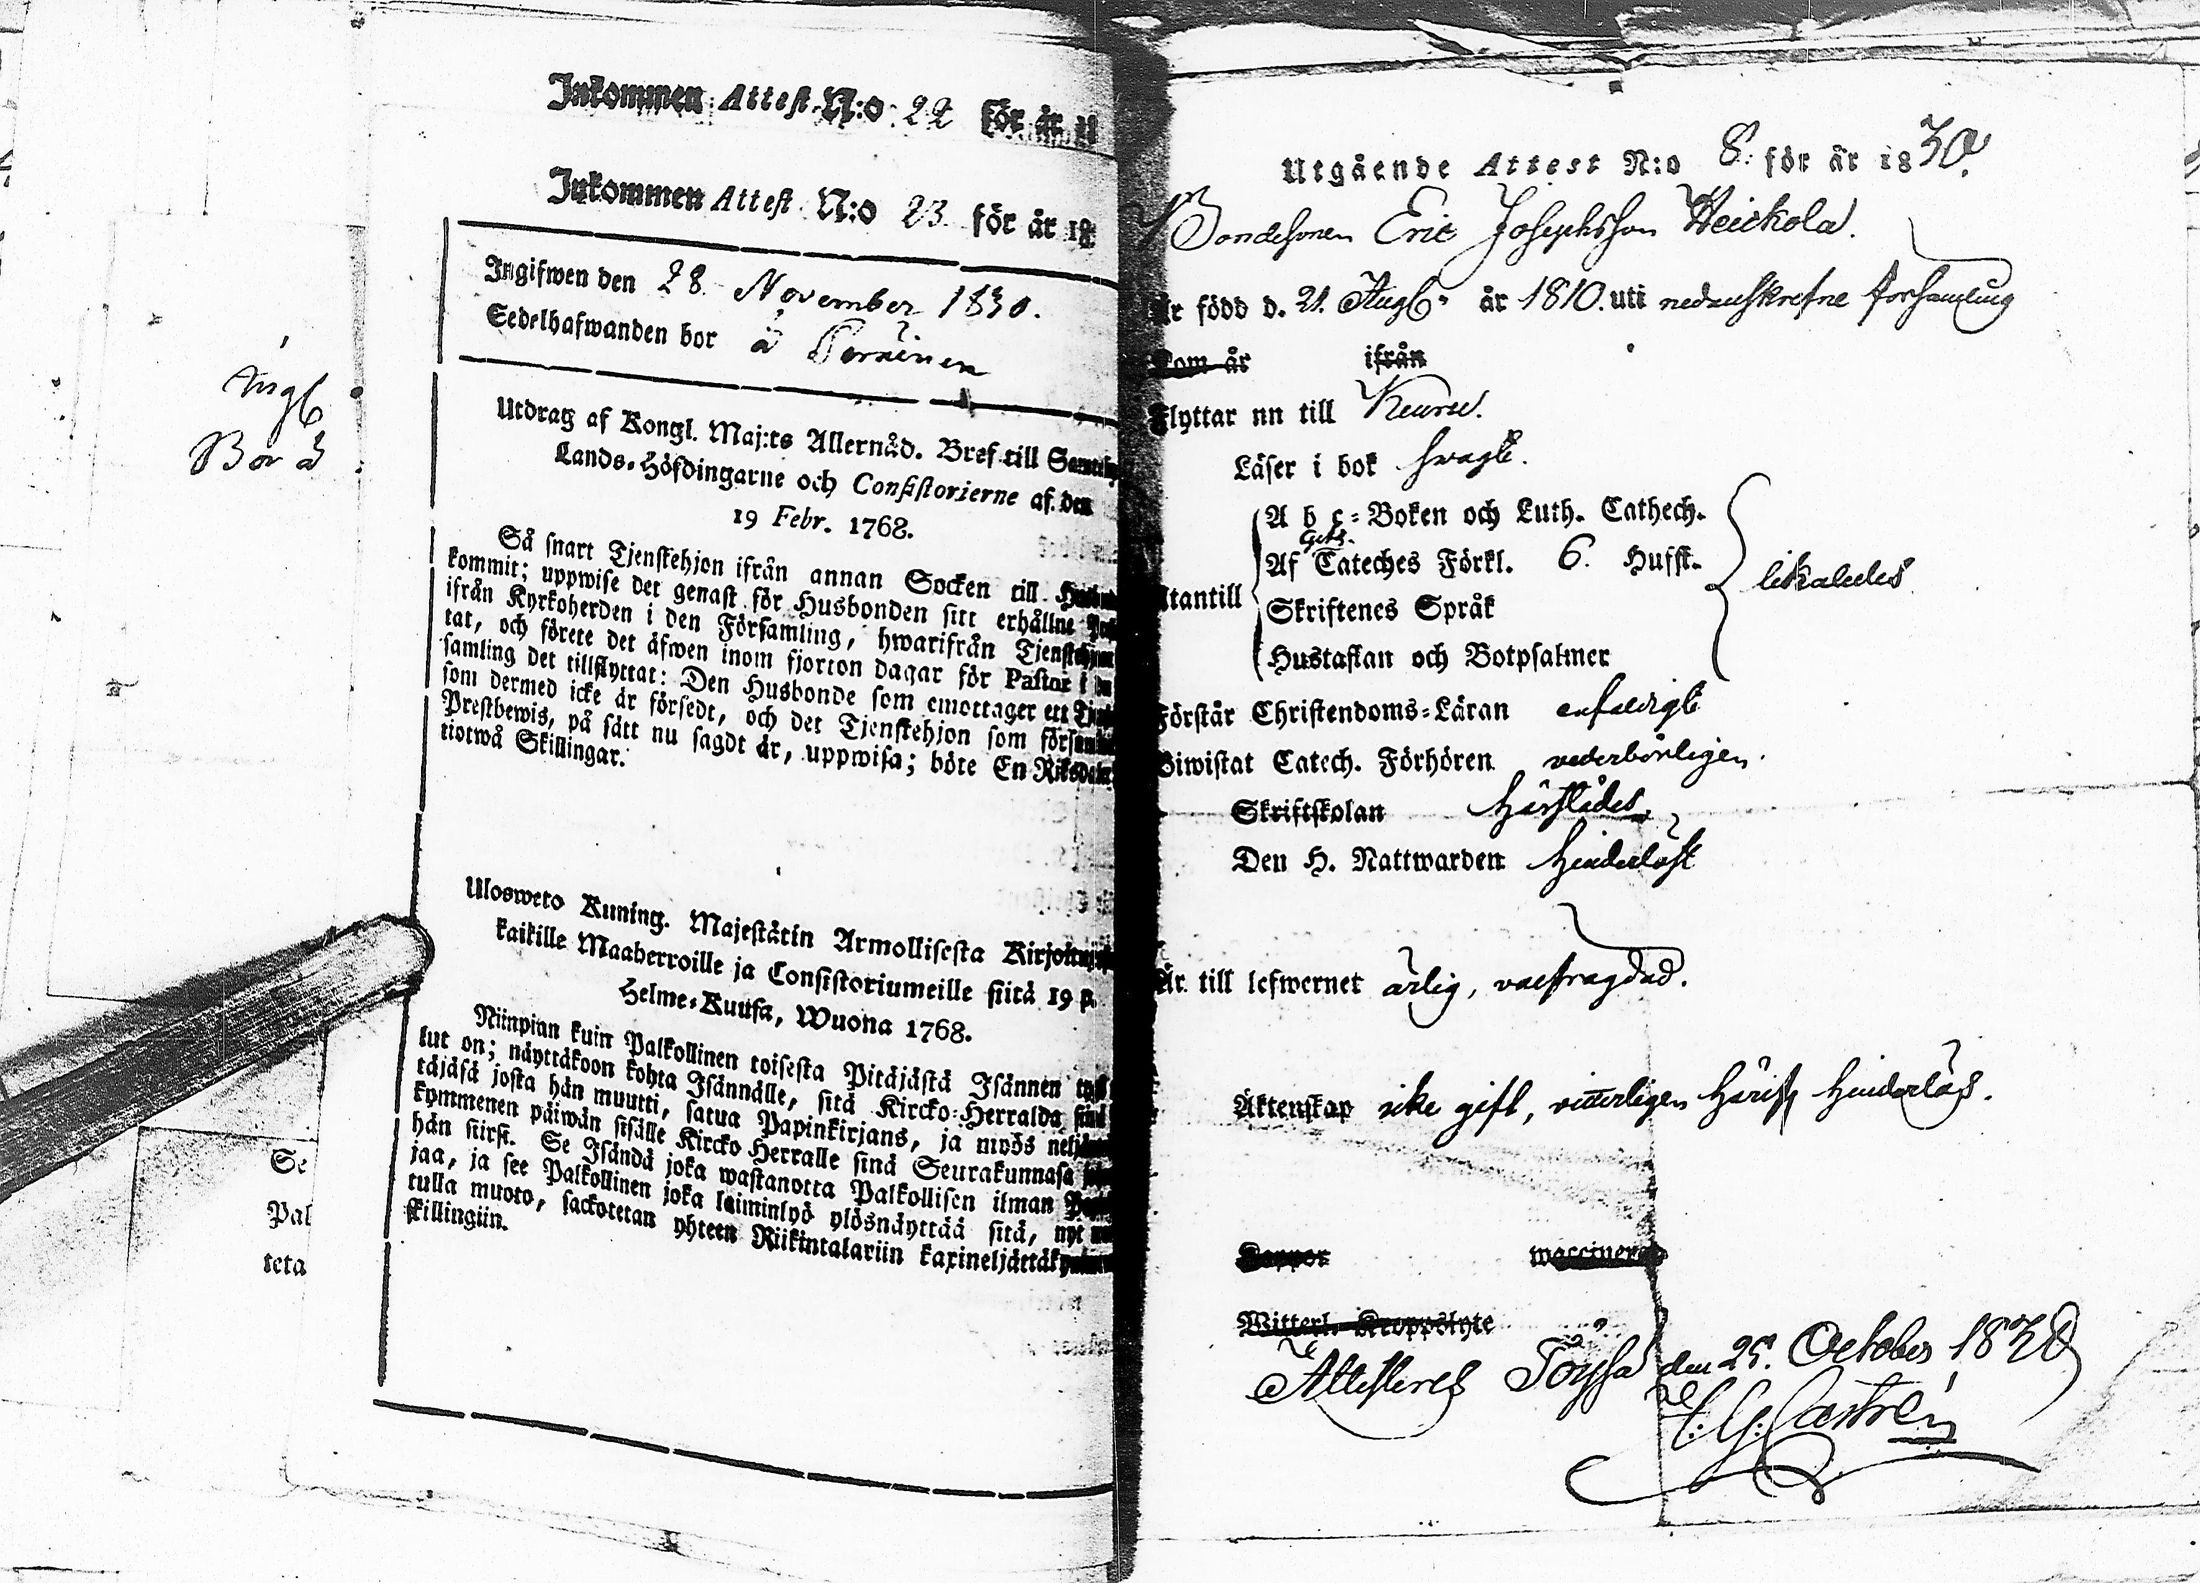 Ingb
Bor å
Se
Pal
teta
Inkommen Attest N:o 22 för år 18
Inkommen Attest N:o 23 för år 18
Ingifwen den 28 November 1830.
Sedelhafwanden bor å
Utdrag af Kongl. Maj:ts Allernåd. Bref till
Lands-Höfdingarne och Consistorierne af den
19 Febr. 1768.
Så snart Tjenstehjon ifrån annan Socken till
kommit; uppwise det genast för Husbonden sitt erhållne
ifrån Kyrkoherden i den Församling, hwarifrån
tat, och förete det äfwen inom fjorton dagar för Pastor i
samling det tillflyttat: Den Husbonde som emottager ett
som dermed icke är försedt, och det Tjenstehjon som
Prestbewis, på sätt nu sagdt är, uppwisa; böte En
tiotwå Skillingar.
Ulosweto Kuning. Majestätin Armollisesta
kaikille Maaherroille ja Consistoriumeille siitä 19 p.
Helme-Kuusa, Wuona 1768.
Niinpian kuin Palkollinen toisesta Pitäjästä Isännen
lut on; näyttäkoon kohta Isännälle, sitä Kircko-Herralda
täjäsä josta hän muutti, satua Papinkirjans, ja myös
kymmenen päiwän sisälle Kircko Herralle sinä Seurakunnasa
hän siirsi. Se Isändä joka wastanotta Palkollisen ilman
jaa, ja see Palkollinen joka laiminlyö ylösnäyttää sitä, nyt
tulla muoto, sackotetan yhteen Riikintalariin
skillingiin.
Utgående Attest N:o 8. för år 1830.
Bondesonen Eric Josephsson Heickola.
Är född d. 21. Augb. år 1810. uti nedanskrefne församling
Kom år ifrån
Flyttar nu till Keuru.
Läser i bok swagt.
A b c-Boken och Luth. Cathech.
Af Cateches Förkl. 6. Hufst.
Utantill Skriftenes Språk likaledes
Hustaflan och Botpsalmer
Förstår Christendoms-Läran enfaldigt
Biwistat Catech. Förhören vederbörligen.
Skriftskolan härstädes,
Den H. Nattwarden hinderlöst
Är till lefwernet ärlig, välfrägdad.
Äktenskap icke gift, vitterligen härest hinderlös.
Koppor waccinerad
Witterl. Kroppslyte
Attesteres Töysä den 25. October 1830
C. G. Castrén